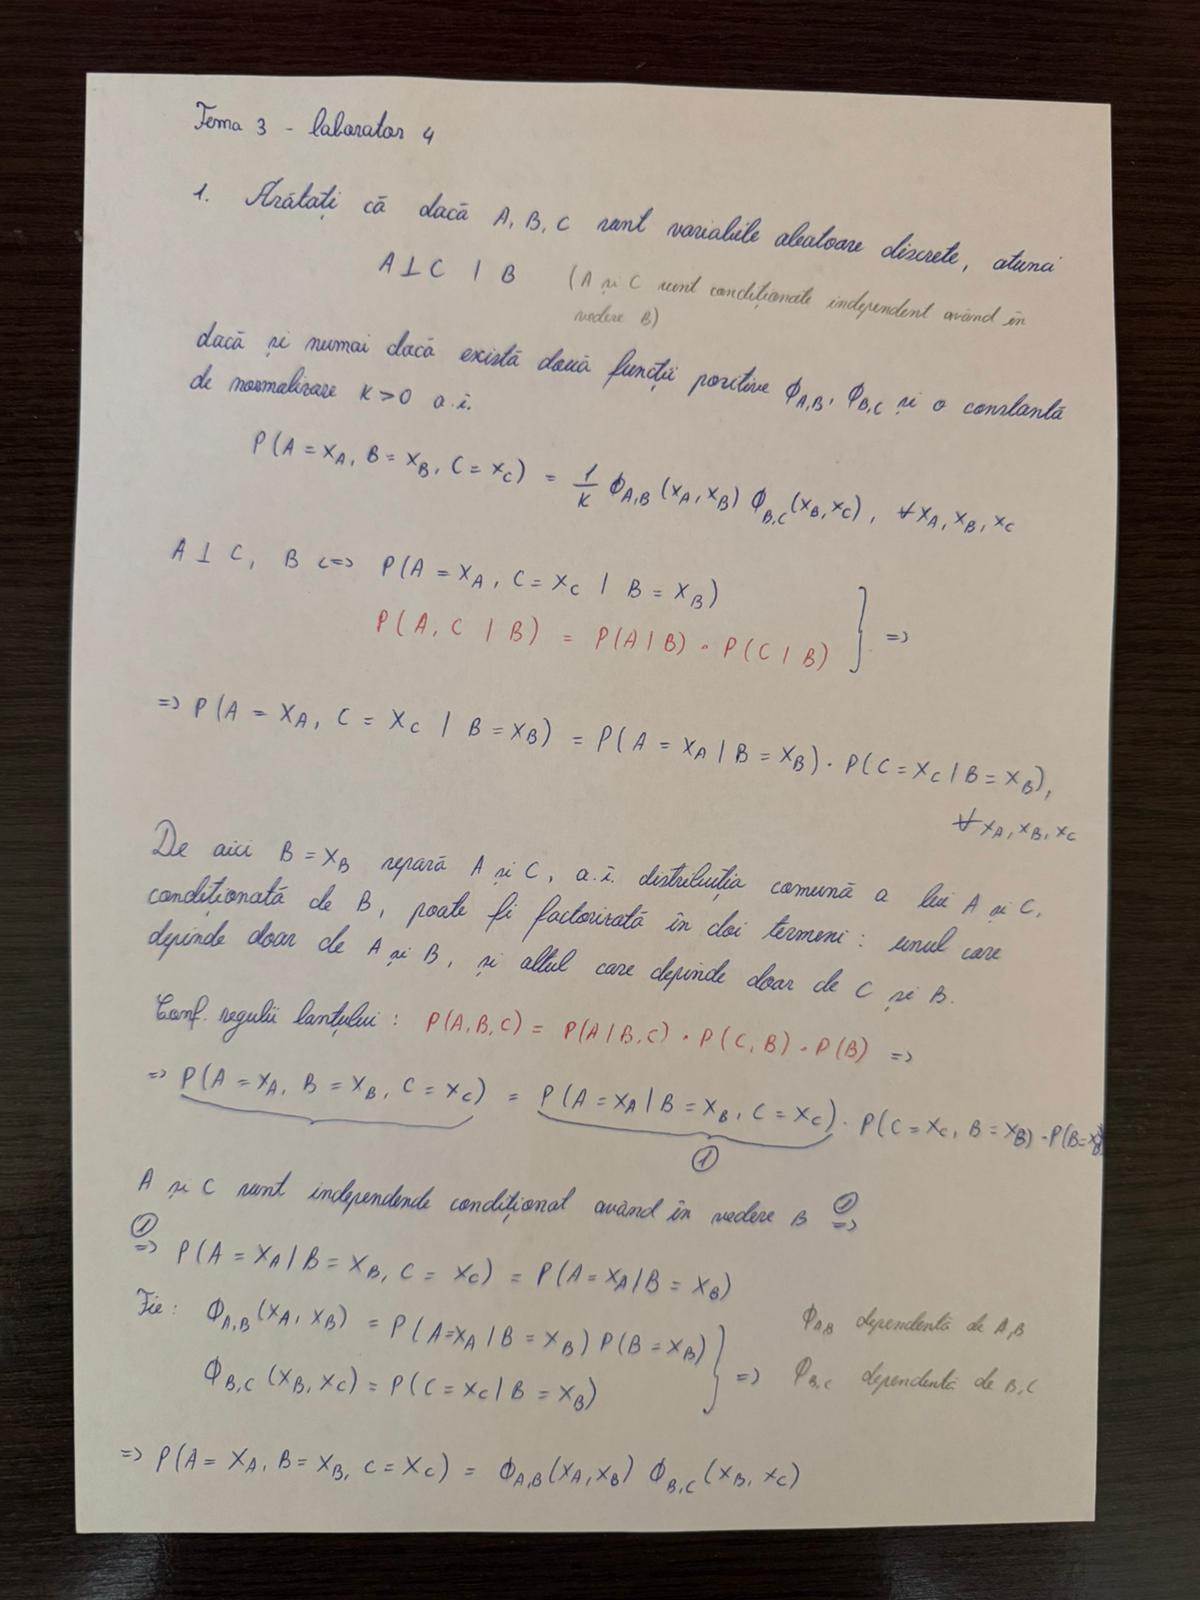 Tema 3 - laborator 4
1. Arătați că dacă A, B, C sunt variabile aleatoare discrete, atunci
A ⊥ C | B (A și C sunt condiționate independent având în
vedere B)
dacă și numai dacă există două funcții pozitive Φ_{A,B}, Φ_{B,C} și o constantă
de normalizare K > 0 a.î.
P(A = x_A, B = x_B, C = x_C) = 1/K Φ_{A,B} (x_A, x_B) Φ_{B,C} (x_B, x_C), ∀ x_A, x_B, x_C
A ⊥ C, B <=> P(A = x_A, C = x_C | B = x_B)
P(A, C | B) = P(A | B) · P(C | B) } =>
=> P(A = x_A, C = x_C | B = x_B) = P(A = x_A | B = x_B) · P(C = x_C | B = x_B),
∀ x_A, x_B, x_C
De aici B = x_B separă A și C, a.î. distribuția comună a lui A și C,
condiționată de B, poate fi factorizată în doi termeni: unul care
depinde doar de A și B, și altul care depinde doar de C și B.
Conf. regulii lanțului: P(A, B, C) = P(A | B, C) · P(C, B) · P(B) =>
=> P(A = x_A, B = x_B, C = x_C) = P(A = x_A | B = x_B, C = x_C) · P(C = x_C, B = x_B) · P(B = x_B)
①
A și C sunt independende condițional având în vedere B ① =>
① => P(A = x_A | B = x_B, C = x_C) = P(A = x_A | B = x_B)
Fie: Φ_{A,B} (x_A, x_B) = P(A = x_A | B = x_B) P(B = x_B) Φ_{A,B} dependentă de A, B
Φ_{B,C} (x_B, x_C) = P(C = x_C | B = x_B) } => Φ_{B,C} dependentă de B, C
=> P(A = x_A, B = x_B, C = x_C) = Φ_{A,B} (x_A, x_B) Φ_{B,C} (x_B, x_C)